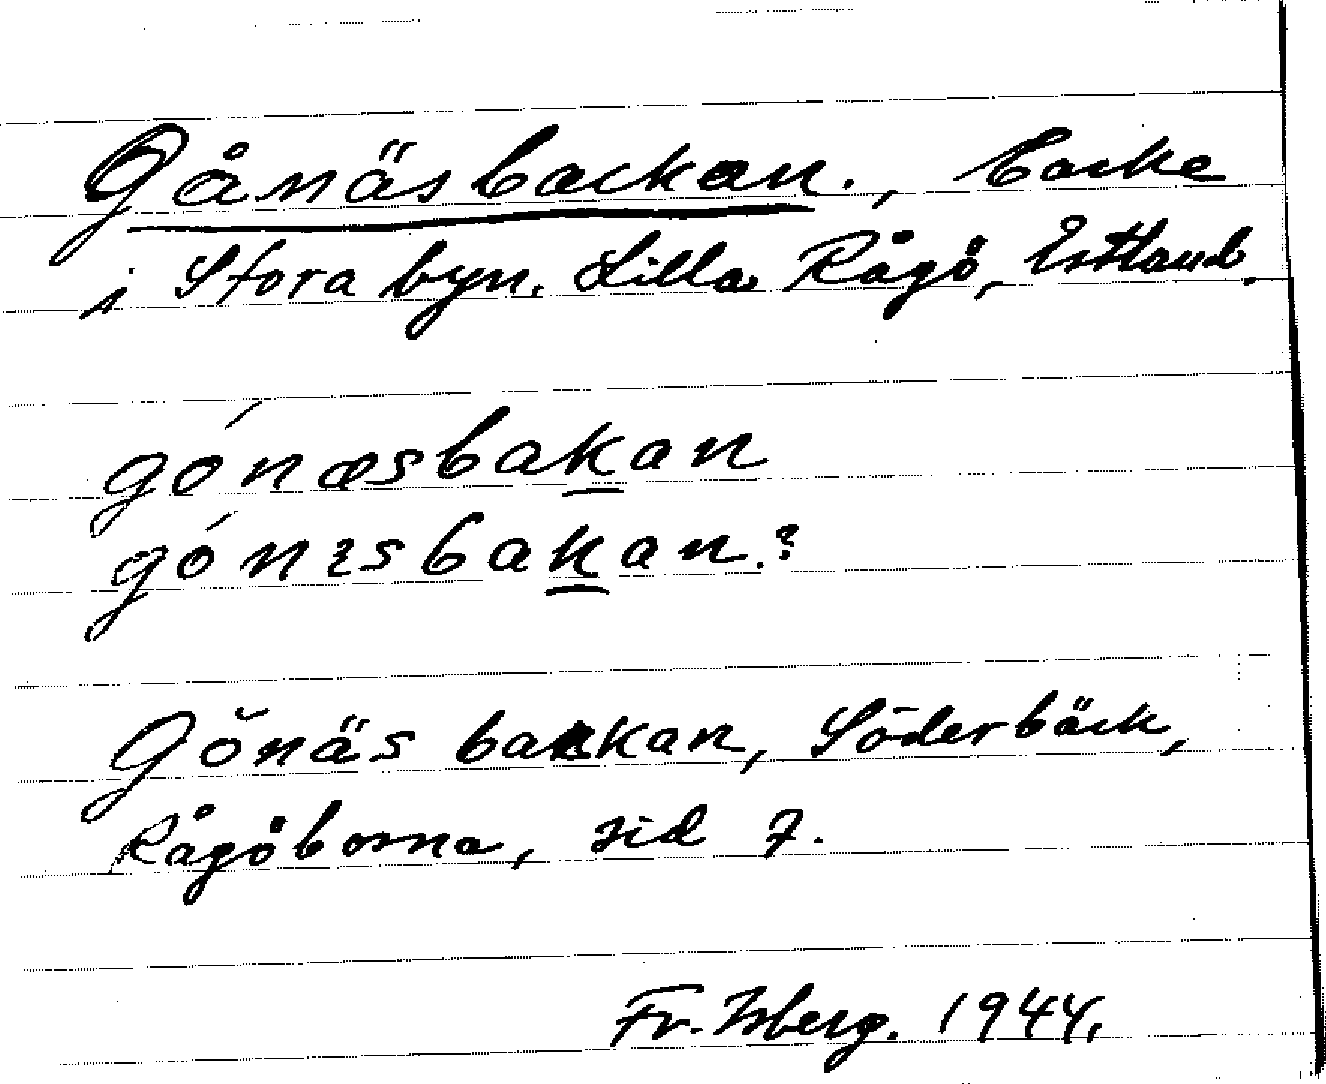 Gånäsbackan., backe
i Stora byn. Lilla Rågö, Estland.
gónæsbakan
gónɜsbakan.?
Gŏnäs bakkan, Söderbäck,
Rågöborna, sid 7.
Fr. Isberg. 1944.